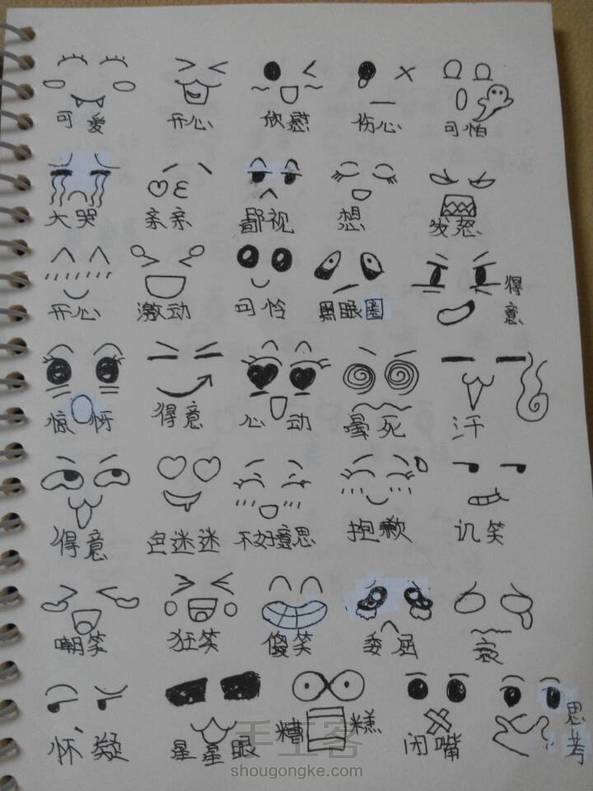 可愛 开心 欣慰 伤心 可怕
大哭 亲亲 鄙视 想 发怒
开心 激动 可怜 黑眼圈 得意
惊讶 得意 心动 晕死 汗
得意 色迷迷 不好意思 抱歉 讥笑
嘲笑 狂笑 傻笑 委屈 哀
怀疑 星星眼 糟糕 闭嘴 思考
手工客
shougongke.com